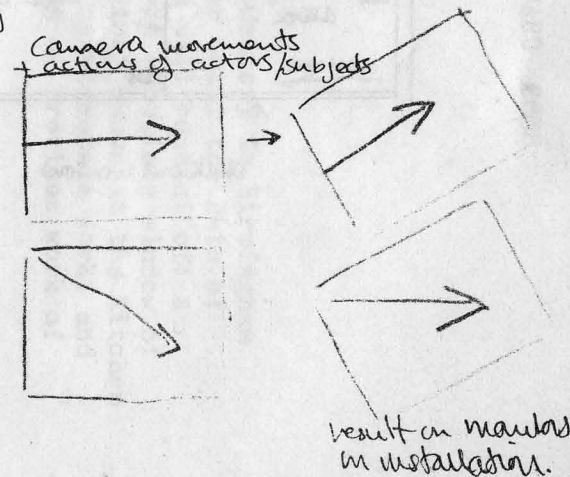 Camera movements
+ actions of actors/subjects
result on monitors
in installation.